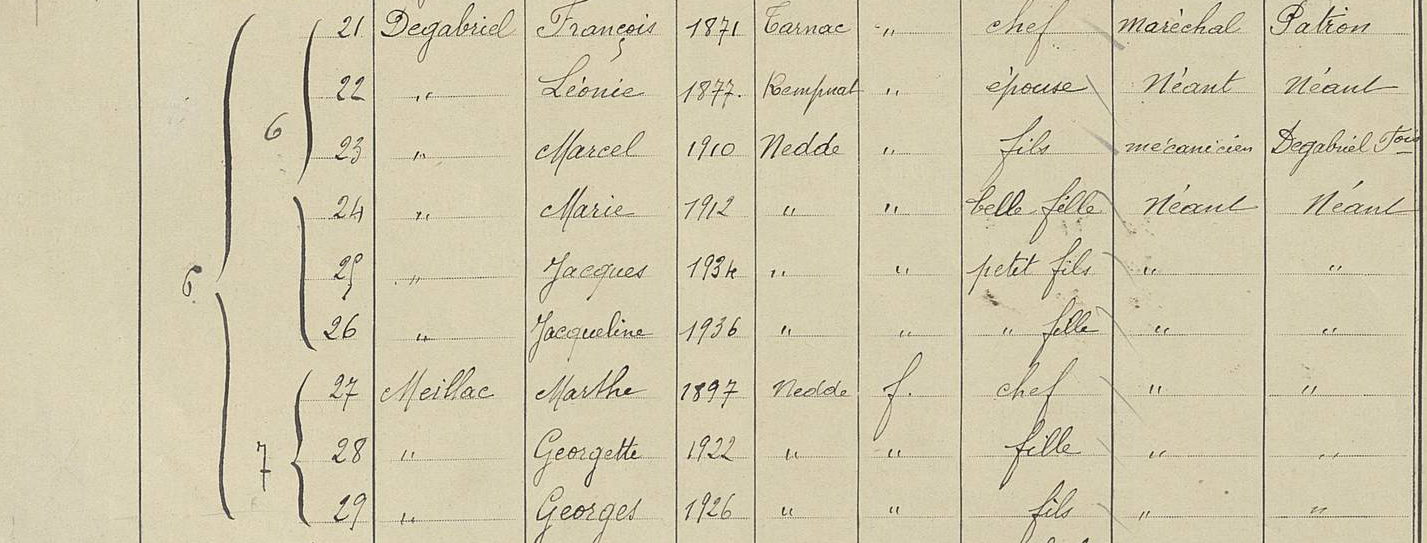 21 Degabriel François 1871 Tarnac " chef maréchal Patron
22 " Léonie 1877. Rempnat " épouse Néant Néant
6
23 " Marcel 1910 Nedde " fils mécanicien Degabriel Fois
24 " Marie 1912 " " belle fille Néant Néant
25 " Jacques 1934 " " petit fils " "
6
26 " Jacqueline 1936 " " " fille " "
27 Meillac Marthe 1897 Nedde f. chef " "
7 28 " Georgette 1922 " " fille " "
29 " Georges 1926 " " fils " "